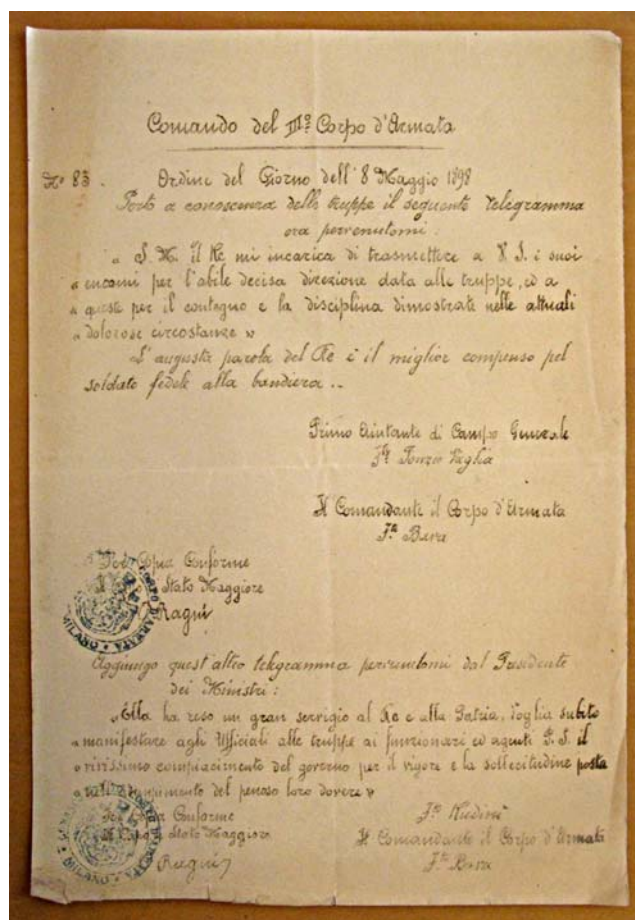 Comando del III.º Corpo d'Armata
Nº 83. Ordine del Giorno dell' 8 Maggio 1898
Porto a conoscenza delle truppe il seguente telegramma
ora pervenutomi:
" S. M. il Re mi incarica di trasmettere a V. S. i suoi
" encomi per l'abile decisa direzione data alle truppe, ed a
" queste per il contegno e la disciplina dimostrati nelle attuali
" dolorose circostanze "
L'augusta parola del Re è il miglior compenso pel
soldato fedele alla bandiera ..
Primo Aiutante di Campo Generale
Fº Ponzio Vaglia
Il Comandante il Corpo d'Armata
Fº Bava
Per Copia Conforme
Stato Maggiore
Ragni
MILANO
CORPO D'ARMATA
Aggiungo quest'altro telegramma pervenutomi dal Presidente
dei Ministri:
" Ella ha reso un gran servigio al Re e alla Patria. Voglia subito
" manifestare agli Ufficiali alle truppe ai funzionari ed agenti P. S. il
" vivissimo compiacimento del governo per il vigore e la sollecitudine posta
" nell'adempimento del penoso loro dovere "
Per Copia Conforme
Il Capo di Stato Maggiore
Ragni
MILANO
Fº Rudinì
Il Comandante il Corpo d'Armata
Fº Bava